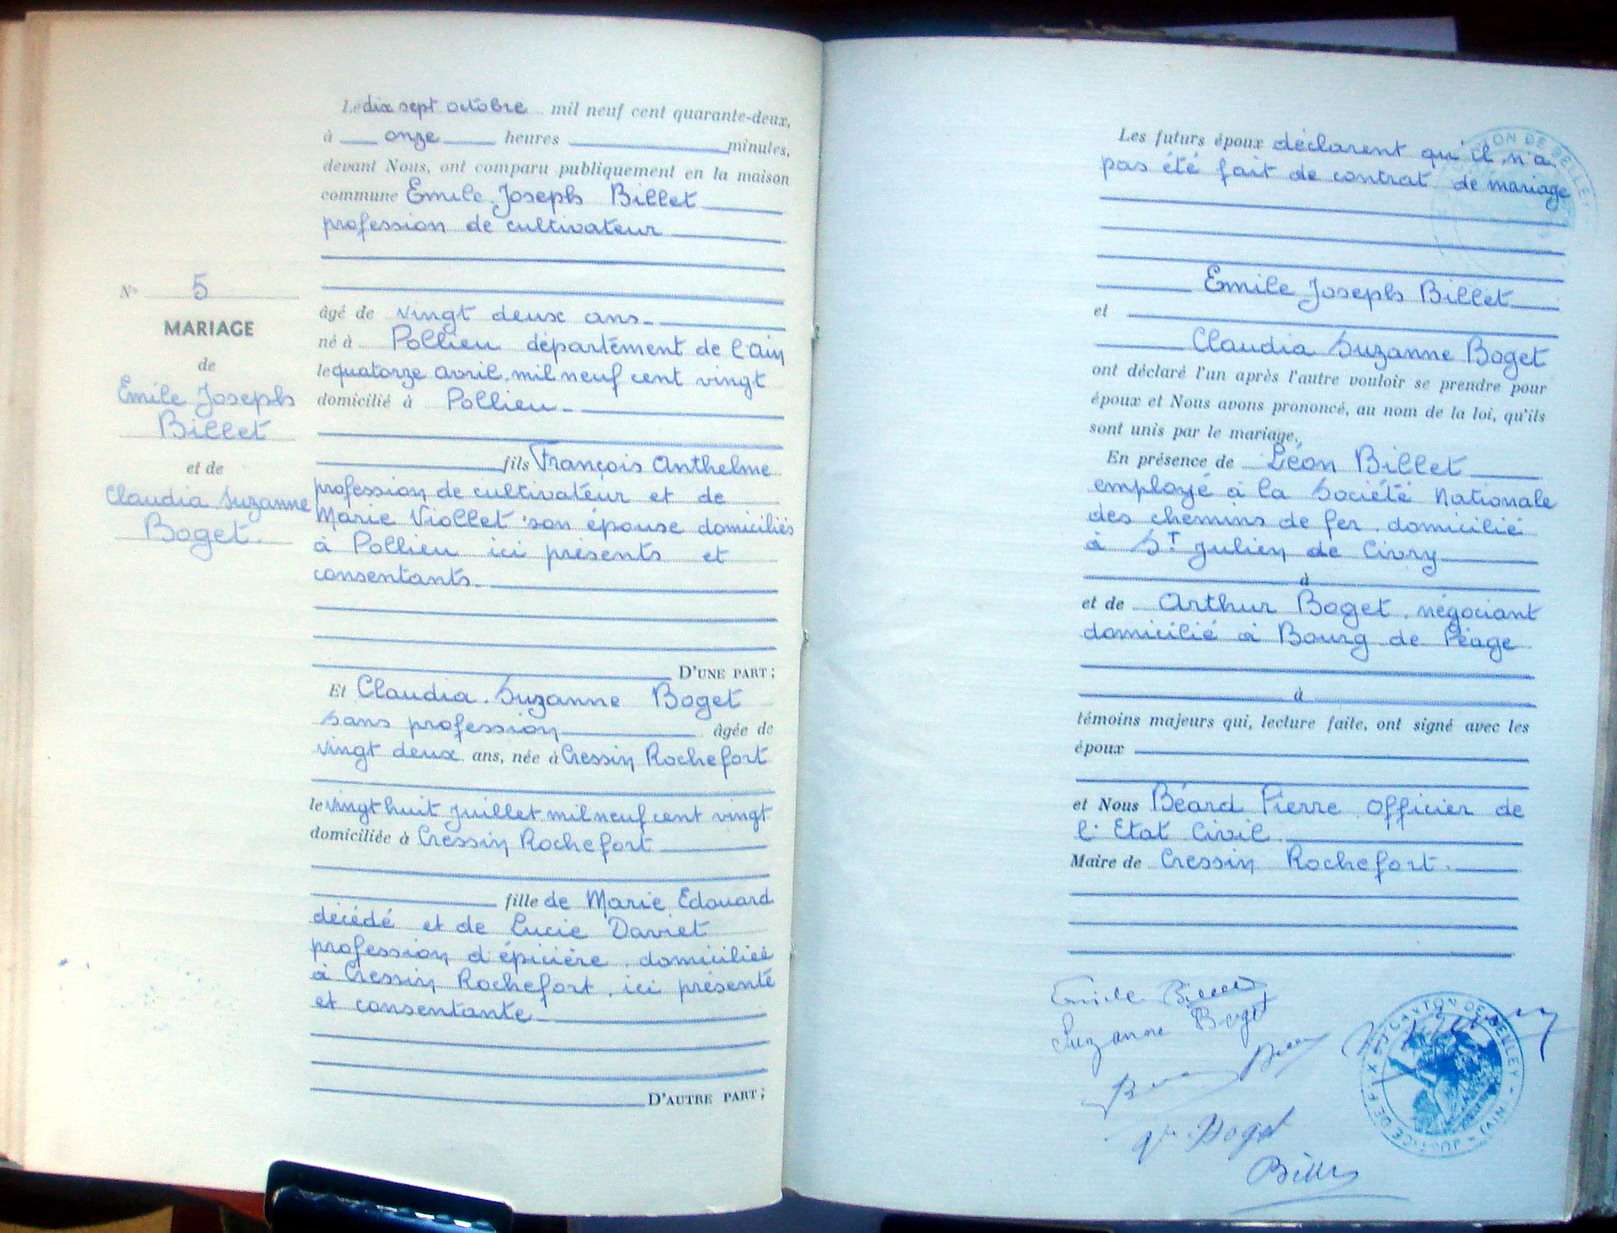 N° 5
MARIAGE
de
Emile Joseph
Billet
et de
Claudia Suzanne
Boget.
Le dix sept octobre mil neuf cent quarante-deux,
à onze heures minutes,
devant Nous, ont comparu publiquement en la maison
commune Emile Joseph Billet
profession de cultivateur
âgé de vingt deux ans
né à Pollieu département de l'ain
le quatorze avril mil neuf cent vingt
domicilié à Pollieu
fils François Anthelme
profession de cultivateur et de
Marie Viollet son épouse domiciliés
à Pollieu ici présents et
consentants
D'UNE PART;
Et Claudia Suzanne Boget
sans profession âgée de
vingt deux ans, née à Cressin Rochefort
le vingt huit juillet mil neuf cent vingt
domiciliée à Cressin Rochefort
fille de Marie Edouard
décédé et de Lucie Daviet
profession d'épicière domiciliée
à Cressin Rochefort, ici présente
et consentante
D'AUTRE PART;
Les futurs époux déclarent qu'il n'a
pas été fait de contrat de mariage
Emile Joseph Billet
et
Claudia Suzanne Boget
ont déclaré l'un après l'autre vouloir se prendre pour
époux et Nous avons prononcé, au nom de la loi, qu'ils
sont unis par le mariage.
En présence de Léon Billet
employé à la Société Nationale
des chemins de fer domicilié
à St Julien de Civry
à
et de Arthur Boget négociant
domicilié à Bourg de Péage
à
témoins majeurs qui, lecture faite, ont signé avec les
époux
et Nous Béard Pierre Officier de
l'Etat Civil
Maire de Cressin Rochefort.
Emile Billet
Suzanne Boget
Boget
JUSTICE DE PAIX CANTON DE BELLEY (AIN)